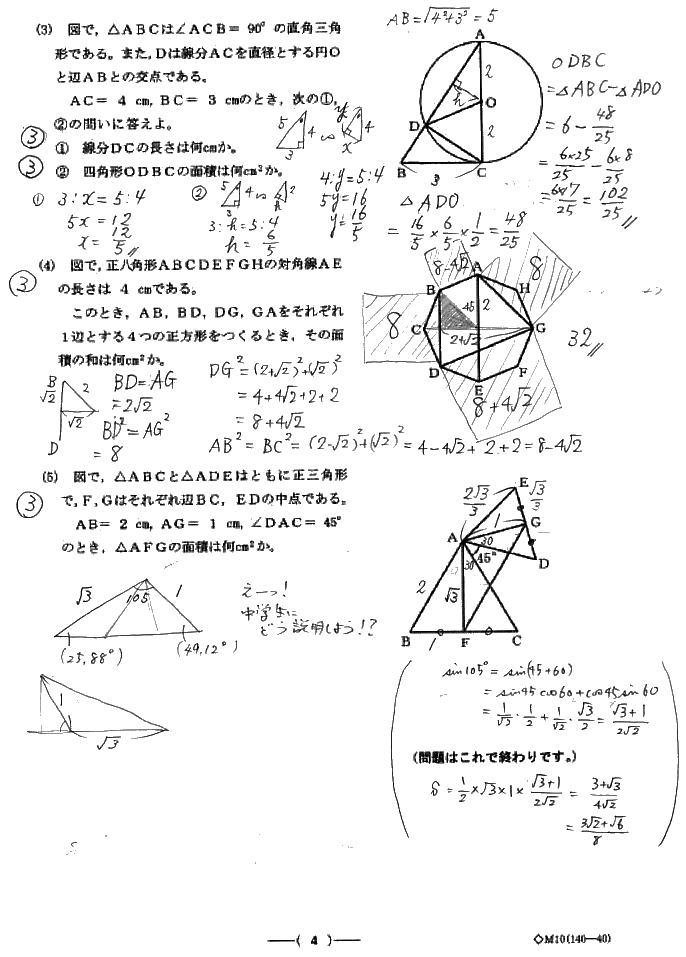 (3) 図で,△ABCは∠ACB=90°の直角三角
形である。また,Dは線分ACを直径とする円O
と辺ABとの交点である。
AC= 4 cm, BC= 3 cmのとき,次の①,
②の問いに答えよ。
③ ① 線分DCの長さは何cmか。
③ ② 四角形ODBCの面積は何cm²か。
AB=√4²+3² = 5
A
2
O
h
D
2
B
3
C
ODBC
=△ABC-△ADO
= 6 - 48/25
= 6×25/25 - 6×8/25
= 6×17/25 = 102/25
5 4 3 ∽ y 4 x
① 3:x=5:4
5x=12
x=12/5
② 5 4 3 ∽ 2 h
3:h=5:4
h=6/5
4:y=5:4
5y=16
y=16/5
△ADO
= 16/5 × 6/5 × 1/2 = 48/25
③ (4) 図で,正八角形ABCDEFGHの対角線AE
の長さは 4 cmである。
このとき,AB,BD,DG,GAをそれぞれ
1辺とする4つの正方形をつくるとき,その面
積の和は何cm²か。
8-4√2
8
A
B
H
45
2
8
C
2+√2
G
D
F
E
8+4√2
32
B
√2
2
√2
D
BD=AG
=2√2
BD²=AG²
= 8
DG²=(2+√2)²+(√2)²
= 4+4√2+2+2
= 8+4√2
AB²=BC²=(2-√2)²+(√2)²=4-4√2+2+2=8-4√2
③ (5) 図で,△ABCと△ADEはともに正三角形
で,F,Gはそれぞれ辺BC,EDの中点である。
AB= 2 cm, AG= 1 cm, ∠DAC= 45°
のとき,△AFGの面積は何cm²か。
2√3/3
E
√3/3
1
G
A
30
D
30
45°
2
√3
B
1
F
C
√3
105
1
(25,88°)
(49,12°)
えーっ!
中学生に
どう説明しよう!?
1
√3
sin105°=sin(45+60)
= sin45 cos60+cos45 sin60
= 1/√2 · 1/2 + 1/√2 · √3/2 = √3+1/2√2
(問題はこれで終わりです。)
S = 1/2 × √3 × 1 × √3+1/2√2 = 3+√3/4√2
= 3√2+√6/8
—( 4 )—
◇M10(140—40)